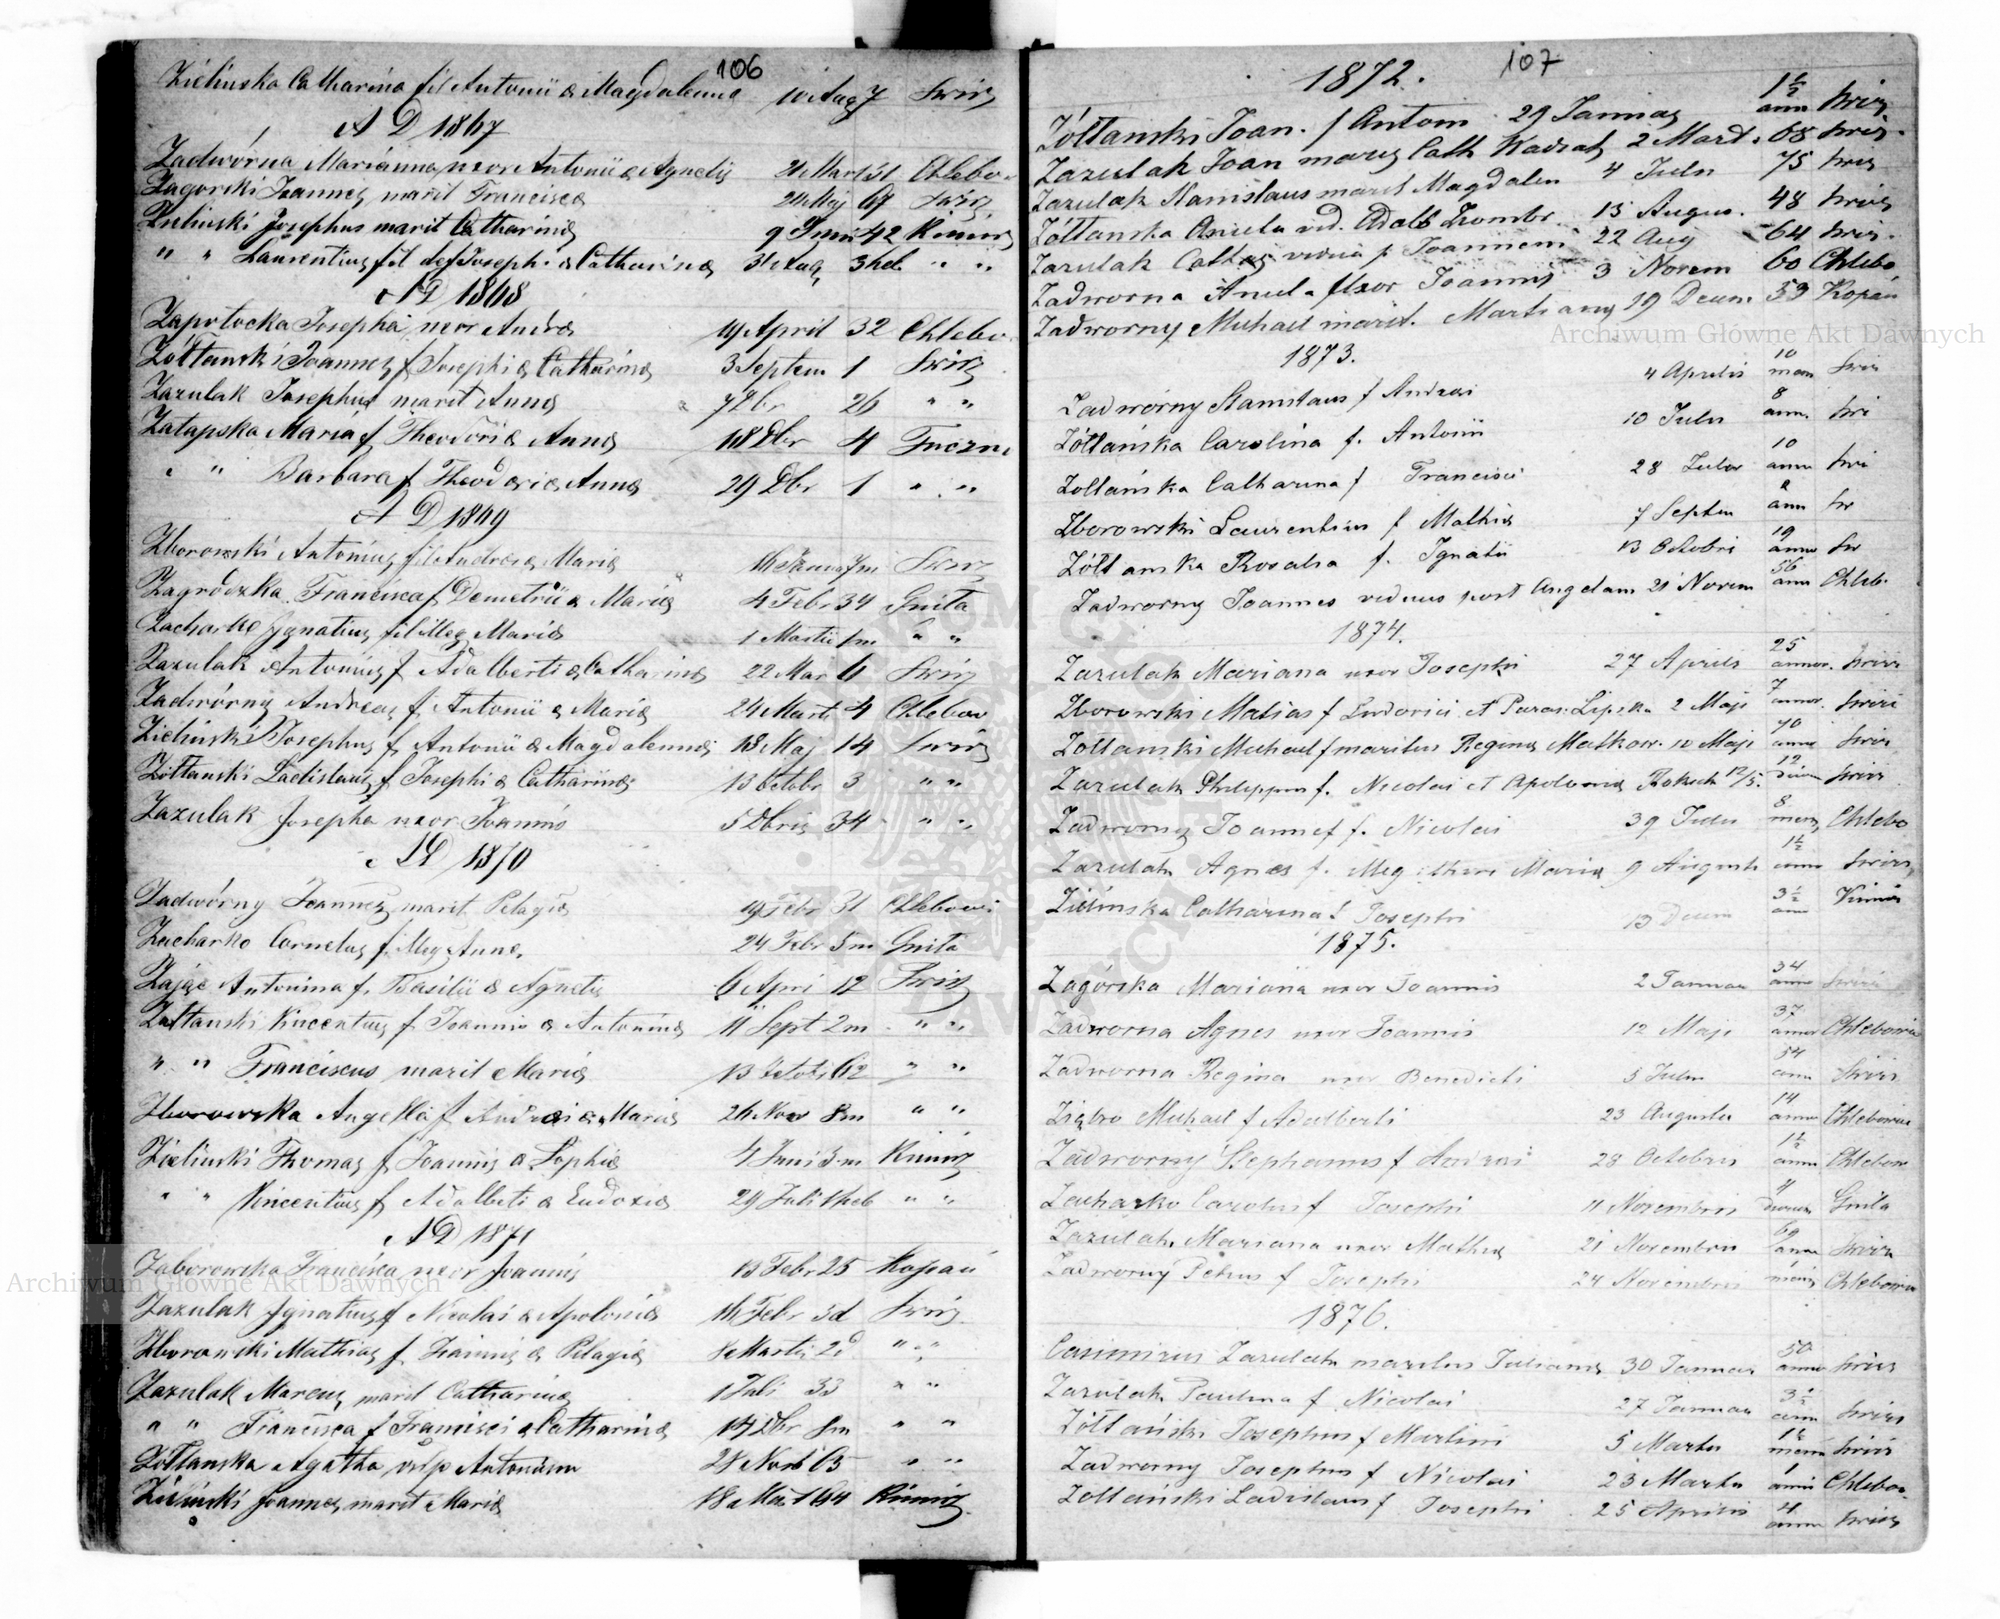 106
Zielinska Catharina fil Antonii & Magdalenna 10 Aug 7 Swirz
A D 1867
Zadwórna Marianna uxor Antonii & Agnetis 21 Mart 31 Chlebo
Zagorski Joannes marit Francisca 24 Maj 67 Swirz
Zielinski Josephus marit Catharina 9 Junii 42 Kimirz
" " Laurentius fil def Joseph. & Catharina 31 Aug 3 heb. " "
A D 1868
Zapotocka Josepha uxor Andrea 19 April 32 Chlebo
Zółtanski Joannes f Josephi & Catharina 3 Septem 1 Swirz
Zazulak Josephus marit Anna 7 26 " "
Zatapska Maria f Theodori & Anna 18 Dbr 4 Tuczna
" " Barbara f Theodori & Anna 29 Dbr 1 " "
A D 1869
Zborowski Antonius fil Andrea & Maria 16 Janua 7m Swirz
Zagródzka Francisca f Demetrii & Maria 4 Febr 34 Gniła
Zacharko Ignatius fil illeg Maria 1 Martii 1m " "
Zazulak Antonius f Adalberti & Catharina 22 Mar 6 Swirz
Zadwórny Andreas f Antonii & Maria 24 Marti 4 Chlebow
Zielinski Josephus f Antonii & Magdalenna 18 Maj 14 Swirz
Zółtanski Ladislaus f Josephi & Catharina 13 Octobr 3 " "
Zazulak Josepha uxor Joannis 5 Dbris 34 " "
A D 1870
Zadwórny Joannes marit Pelagia 19 Febr 31 Chlebowi
Zacharko Cornelus f illeg Anna 24 Febr 5m Gniła
Zając Antonina f. Basilii & Agnetis 6 Apri 12 Swirz
Zółtanski Vincentius f Joannis & Antonina 11 Sept 2m " "
" " Franciscus marit Maria 13 Octob 62 " "
Zborowska Angella f Andrei & Maria 26 Nov 8m " "
Zielinski Thomas f Joannis & Sophia 4 Juni 3m Kimirz
" " Vincentius f Adalberti & Eudoxia 29 Juli 1 heb " "
A D 1871
Zaborowska Francisca uxor Joannis 13 Febr 25 Kopań
Zazulak Ignatius f Nicolai & Apolonia 16 Febr 3d Swirz
Zborowski Mathias f Joannis & Pelagia 8 Martii 2d " "
Zazulak Marcus marit Catharina 1 Juli 33 " "
" " Francisca f Francisci & Catharina 14 Dbr 8m " "
Zółtanska Agatha vid p Antonium 28 Nov 65 " "
Zielinski Joannes marit Maria 18 Mart 64 Kimirz
107
1872.
Zółtanski Joan. f Antoni 29 Januas 1½ ann Swirz
Zazulak Joan marig Cath Kadzab 2 Mart. 68 Swirz
Zazulak Stanislaus marit Magdalen 4 Julii 75 Swirz
Zółtanska Aniela vid. Adalb Zrombr 15 Augus. 48 Swirz
Zazulak Cathar vidua p Joannem 22 Aug 64 Swirz
Zadworna Aniela f Uxor Joannis 3 Novem 60 Chlebo
Zadworny Michael marit. Martiana 19 Decem 53 Kopań
1873.
Zadworny Stanislaus f Andrei 4 Aprilis 10 men Swirz
Zółtańska Carolina f. Antonii 10 Julii 8 ann. Swi
Zołtańska Catharina f Francisci 28 Julii 10 ann Swi
Zborowski Laurentius f Mathia 7 Septem ann Sw
Zółtanska Rosalia f. Ignatii 13 Octobri 19 anno Sw
Zadworny Joannes viduus post Angelam 21 Novem 56 ann Chleb.
1874.
Zazulak Mariana uxor Josephi 27 Aprilis 25 annor. Swirz
Zborowski Matias f Ludovici et Paras. Lipska 2 Maji 7 annor. Swirz
Zółtanski Michael f maritus Regina Matkow. 10 Maji 40 anno Swirz
Zazulak Philippus f. Nicolai et Apolonia Rokech 12/5. 12 dierum Swirz
Zadworny Joannes f. Nicolai 39 Julii 8 mens Chlebo
Zazulak Agnes f. illeg. thori Maria 9 Augusti 1½ anno Swirz
Zielinska Catharina f Josephi 13 Decem 3½ ann Kimir
1875.
Zagórska Mariana uxor Joannis 2 Januar 34 anno Swirz
Zadworna Agnes uxor Joannis 12 Maji 37 annor Chlebowice
Zadworna Regina uxor Benedicti 5 Julii 54 ann Swirz
Ziębro Michael f Adalberti 23 Augusti 14 anno Chlebowice
Zadworny Stephanus f Andrei 28 Octobris 1½ anni Chlebow
Zacharko Carolus f Josephi 11 Novembris 4 dierum Gniła
Zazulak Mariana uxor Mathia 21 Novembris 69 anno Swirz
Zadworny Petrus f Josephi 24 Novembris 1 mens Chlebowice
1876.
Casimirus Zazulak maritus Juliana 30 Januar 50 anno Swirz
Zazulak Paulina f Nicolai 27 Januar 3½ ann Swirz
Zółtański Josephus f Martini 5 Martii 1½ mens Swirz
Zadworny Josephus f Nicolai 23 Martii 1 anni Chlebow.
Zołtański Ladislaus f Josephi 25 Aprilis 4 anno Swirz
Archiwum Główne Akt Dawnych
Archiwum Główne Akt Dawnych